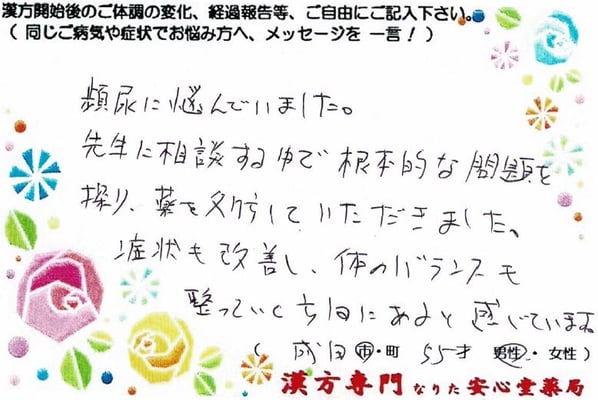 漢方開始後のご体調の変化、経過報告等、ご自由にご記入下さい。
(同じご病気や症状でお悩み方へ、メッセージを 一言!)
頻尿に悩んでいました。
先生に相談する中で根本的な問題を
探り、薬を処方していただきました。
症状も改善し、体のバランスも
整っていく方向にあると感じています。
( 成田 市・町 55才 男性・女性 )
漢方専門 なりた 安心堂薬局